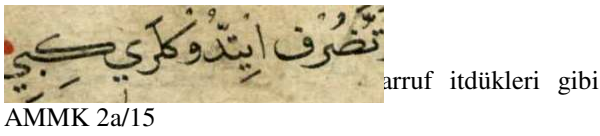 تَصَرُّف اِيتدُوكلَرِي كِبِي
arruf itdükleri gibi
AMMK 2a/15